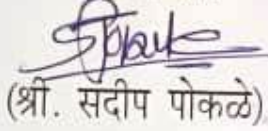 (श्री. संदीप पोकळे)